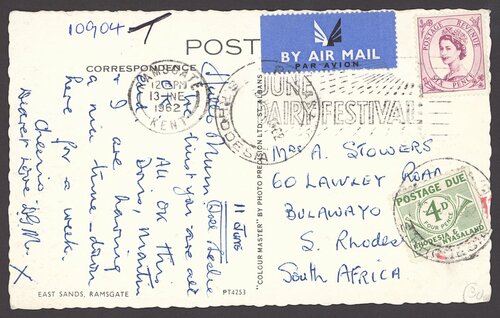 10904 T
CORRESPONDENCE
POST
BY AIR MAIL
PAR AVION
POSTAGE REVENUE
SIX PENCE
RAMSGATE
12 PM
13 JNE
1962
KENT
JUNE
DAIRY FESTIVAL
11 June
Hullo Mum,
trust you are all
OK
All OK this
end. Doris, Martin
& I are having
a nice time - down
here for a week.
Cheerio
Dearest Love
X
MRS A. STOWERS
60 LAWLEY ROAD
BULAWAYO
S. RHODESIA
SOUTH AFRICA
POSTAGE DUE
4D
FOUR PENCE
RHODESIA &
NYASALAND
"COLOUR MASTER" BY PHOTO PRECISION LTD., ST. ALBANS
EAST SANDS, RAMSGATE
PT4253